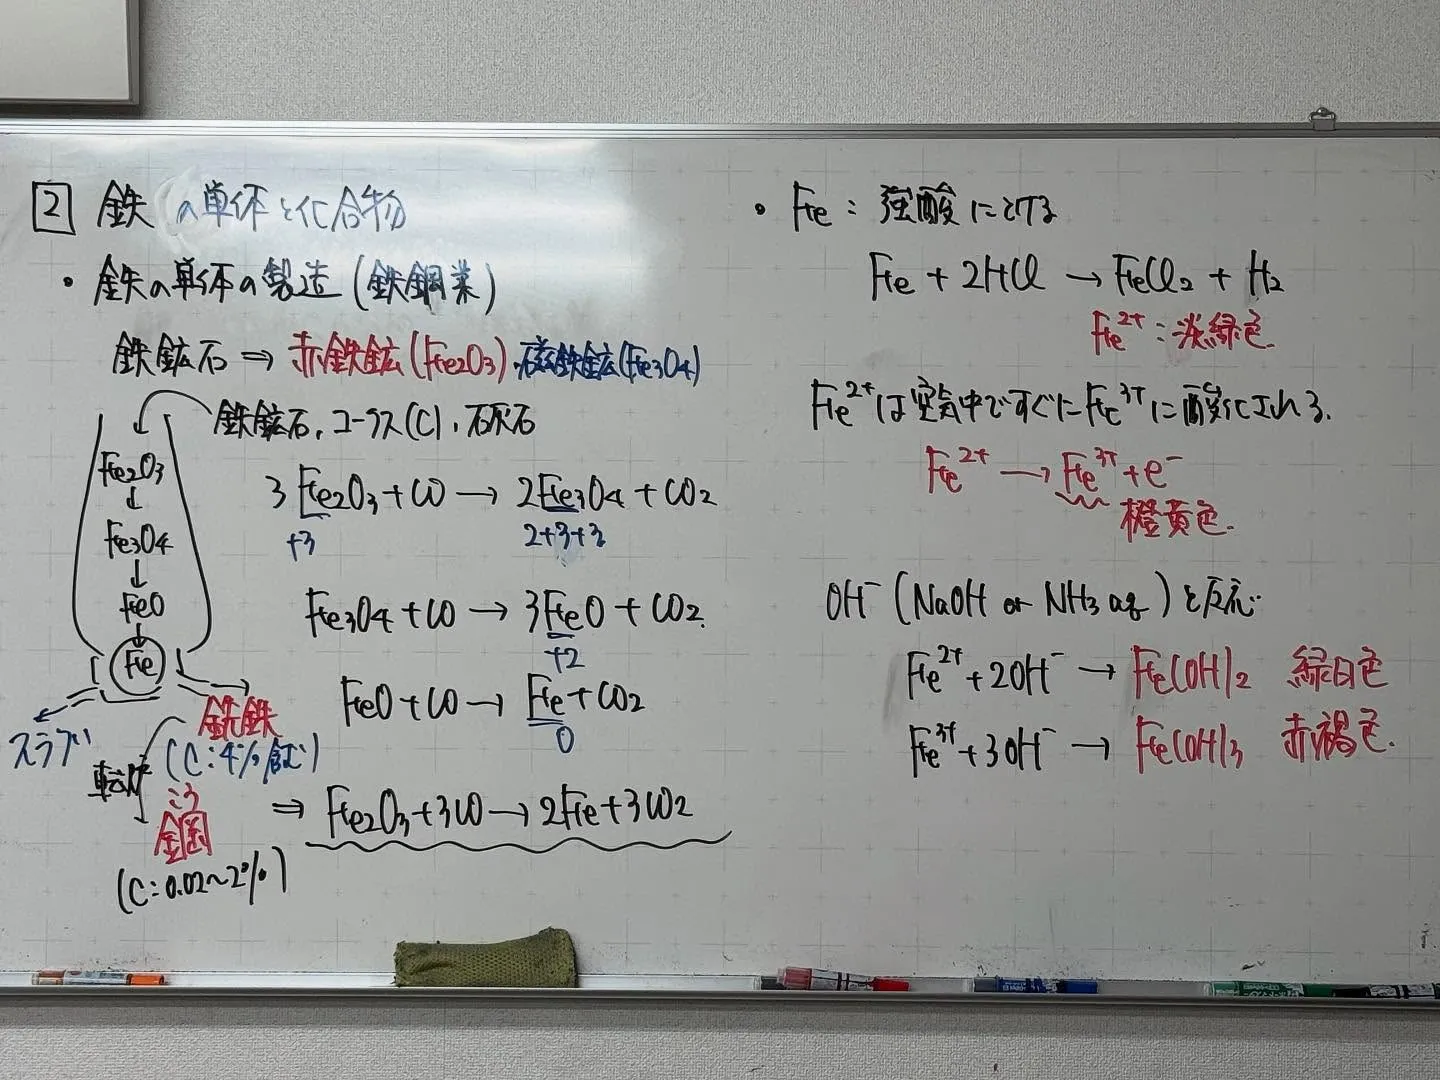 2 鉄の単体と化合物
・鉄の単体の製造(鉄鋼業)
鉄鉱石 ⇒ 赤鉄鉱(Fe2O3)、磁鉄鉱(Fe3O4)
鉄鉱石, コークス(C), 石灰石
Fe2O3
↓
Fe3O4
↓
FeO
↓
Fe
スラグ
銑鉄
(C:4%含む)
転炉
こう
鋼
(C:0.02~2%)
3Fe2O3+CO → 2Fe3O4+CO2
+3 2+3+3
Fe3O4+CO → 3FeO+CO2.
+2
FeO+CO → Fe+CO2
0
⇒ Fe2O3+3CO → 2Fe+3CO2
・Fe:強酸にとける
Fe + 2HCl → FeCl2 + H2
Fe2+:淡緑色
Fe2+は空気中ですぐにFe3+に酸化される.
Fe2+ → Fe3++e-
橙黄色.
OH-(NaOH or NH3 aq)と反応
Fe2++2OH- → Fe(OH)2 緑白色
Fe3++3OH- → Fe(OH)3 赤褐色.